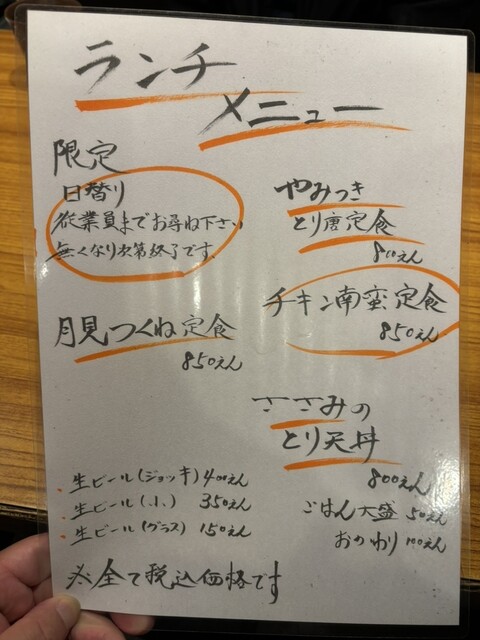 ランチ
メニュー
限定
日替り
従業員までお尋ね下さい
無くなり次第終了です。
やみつき
とり唐定食
800えん
チキン南蛮定食
850えん
月見つくね定食
850えん
ささみの
とり天丼
800えん
ごはん大盛 50えん
おかわり 100えん
生ビール(ジョッキ) 400えん
生ビール(小) 350えん
生ビール(グラス) 150えん
※全て税込価格です